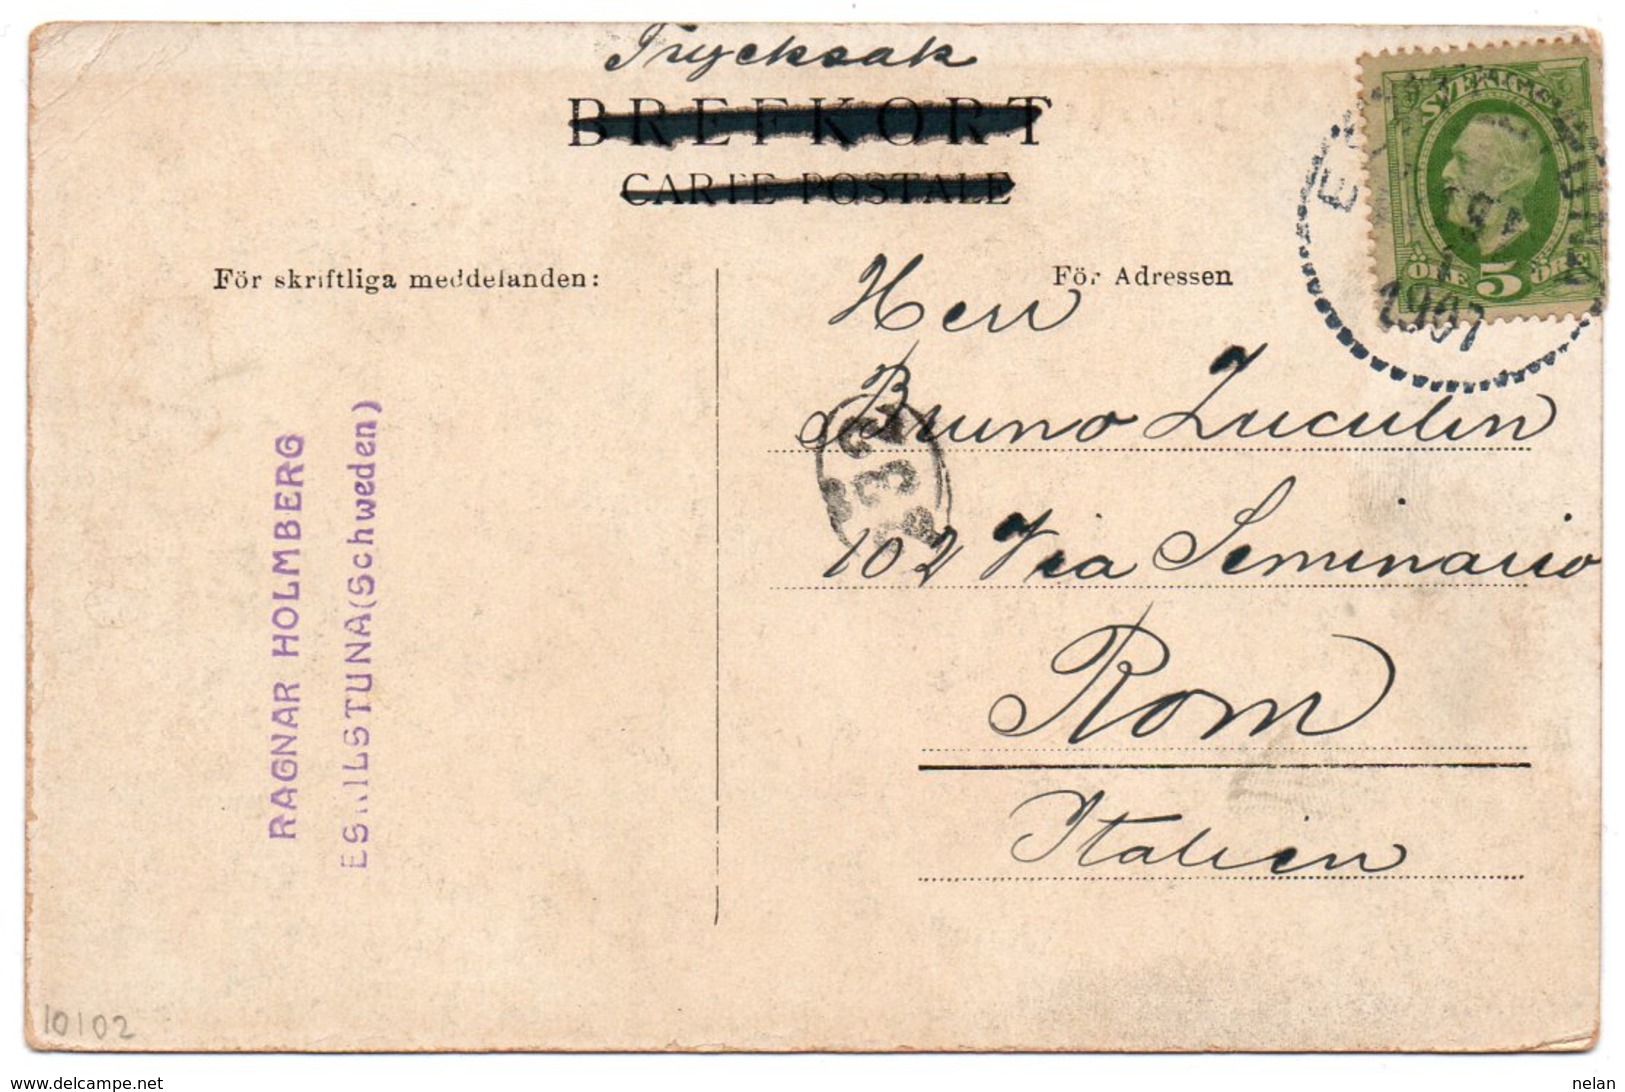 Trycksak
BREFKORT
CARTE POSTALE
För skriftliga meddelanden:
För Adressen
SVERIGE
ÖRE 5 ÖRE
1907
Herr
Bruno Zuculin
102 Via Seminario
Rom
Italien
RAGNAR HOLMBERG
ESKILSTUNA (Schweden)
10102
www.delcampe.net
nelan